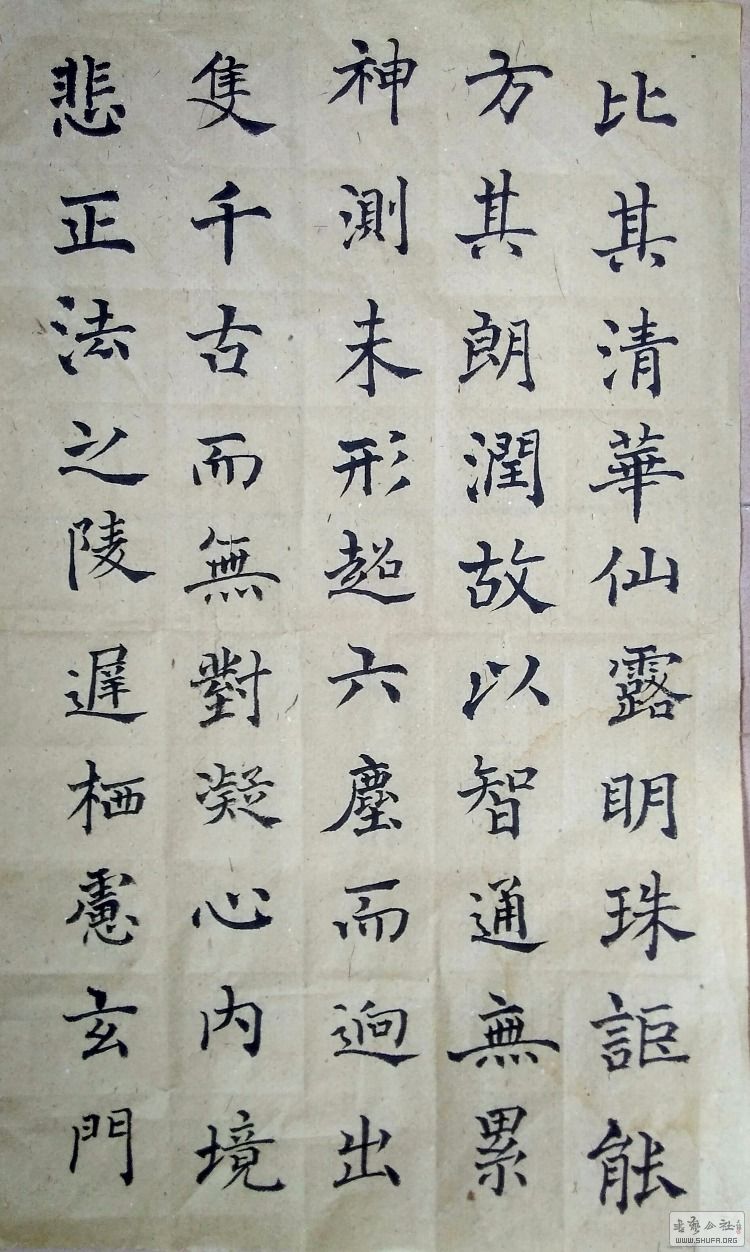 比其清華仙露明珠詎能
方其朗潤故以智通無累
神測未形超六塵而迥出
隻千古而無對凝心內境
悲正法之陵遲栖慮玄門
书法公社
WWW.SHUFA.ORG